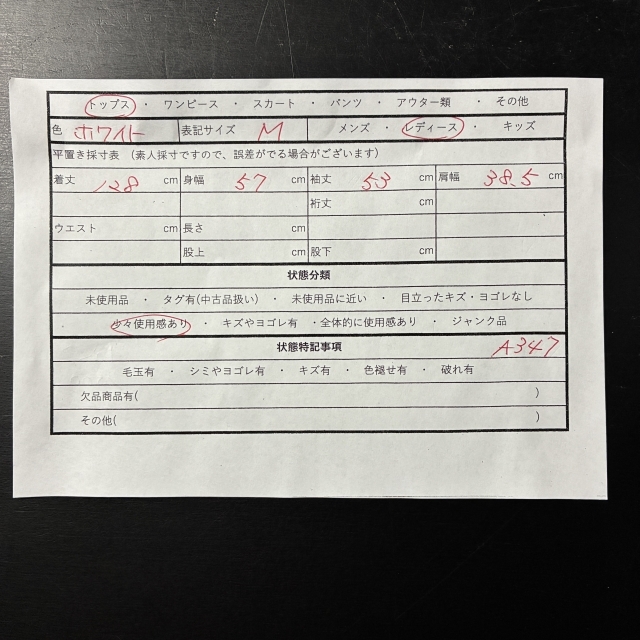 トップス ・ ワンピース ・ スカート ・ パンツ ・ アウター類 ・ その他
色 ホワイト 表記サイズ M メンズ ・ レディース ・ キッズ
平置き採寸表 (素人採寸ですので、誤差がでる場合がございます)
着丈 128 cm 身幅 57 cm 袖丈 53 cm 肩幅 38.5 cm
裄丈 cm
ウエスト cm 長さ cm
股上 cm 股下 cm
状態分類
未使用品 ・ タグ有(中古品扱い) ・ 未使用品に近い ・ 目立ったキズ・ヨゴレなし
少々使用感あり ・ キズやヨゴレ有 ・全体的に使用感あり ・ ジャンク品
状態特記事項 A347
毛玉有 ・ シミやヨゴレ有 ・ キズ有 ・ 色褪せ有 ・ 破れ有
欠品商品有( )
その他( )